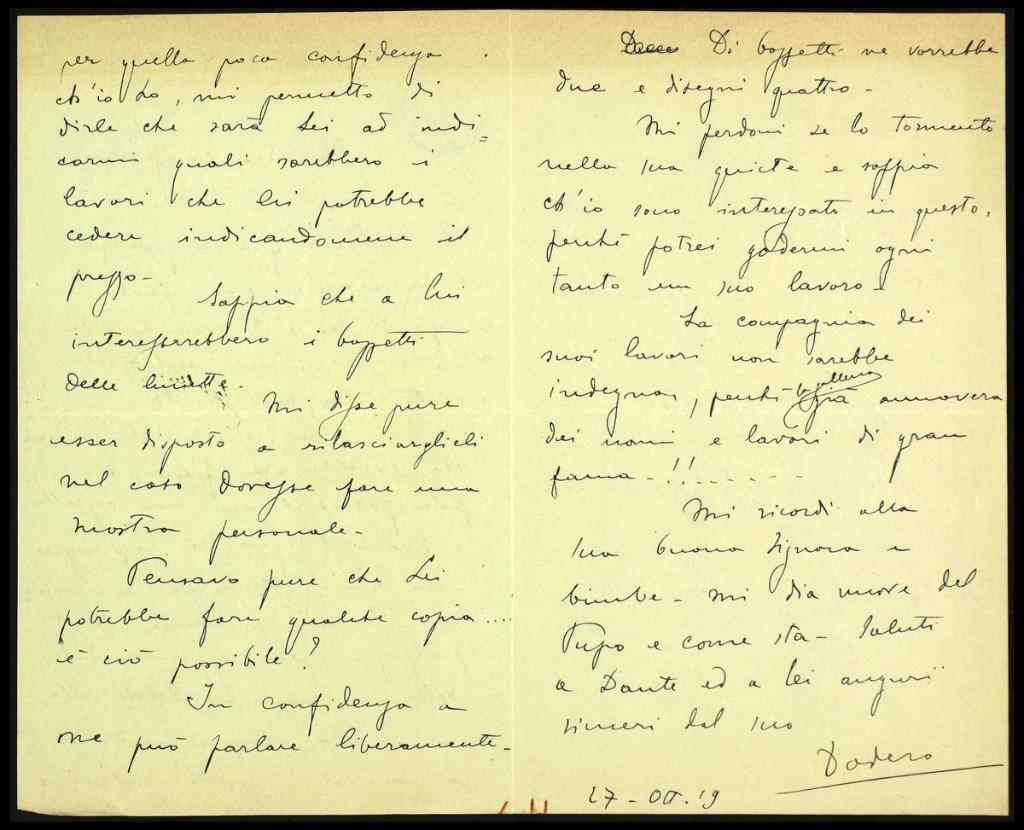 per quella poca confidenza
ch'io ho, mi permetto di
dirle che sarà Lei ad indi=
carmi quali sarebbero i
lavori che lei potrebbe
cedere indicandomene il
prezzo-
Sappia che a lui
interesserebbero i bozzetti
delle
Mi disse pure
esser disposto a rilasciarglieli
nel caso dovesse fare una
mostra personale-
Pensavo pure che Lei
potrebbe fare qualche copia....
è ciò possibile?
In confidenza a
me può parlare liberamente-
Di bozzetti ne vorrebbe
due e disegni quattro-
Mi perdoni se lo tormento
nella sua quiete e sappia
ch'io sono interessato in questo,
perchè potrei godermi ogni
tanto un suo lavoro-
La compagnia dei
suoi lavori non sarebbe
indegna, perchè già annovera
dei nomi e lavori di gran
fama-!!-----
Mi ricordi alla
sua buona Signora e
bimbe- mi dia nuove del
Pupo e come sta- Saluti
a Dante ed a lei auguri
sinceri dal suo
Dodero
27-Ott.19